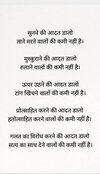 सुनने की आदत डालो
ताने मारने वालों की कमी नहीं है।
मुस्कुराने की आदत डालो
रुलाने वालों की कमी नहीं है।
ऊपर उठने की आदत डालो
टांग खिंचने वालों की कमी नहीं है।
प्रोत्साहित करने की आदत डालो
हतोत्साहित करने वालों की कमी नहीं है।
गलत का विरोध करने की आदत डालो
सत्य का साथ देने वालों की कमी नहीं है।